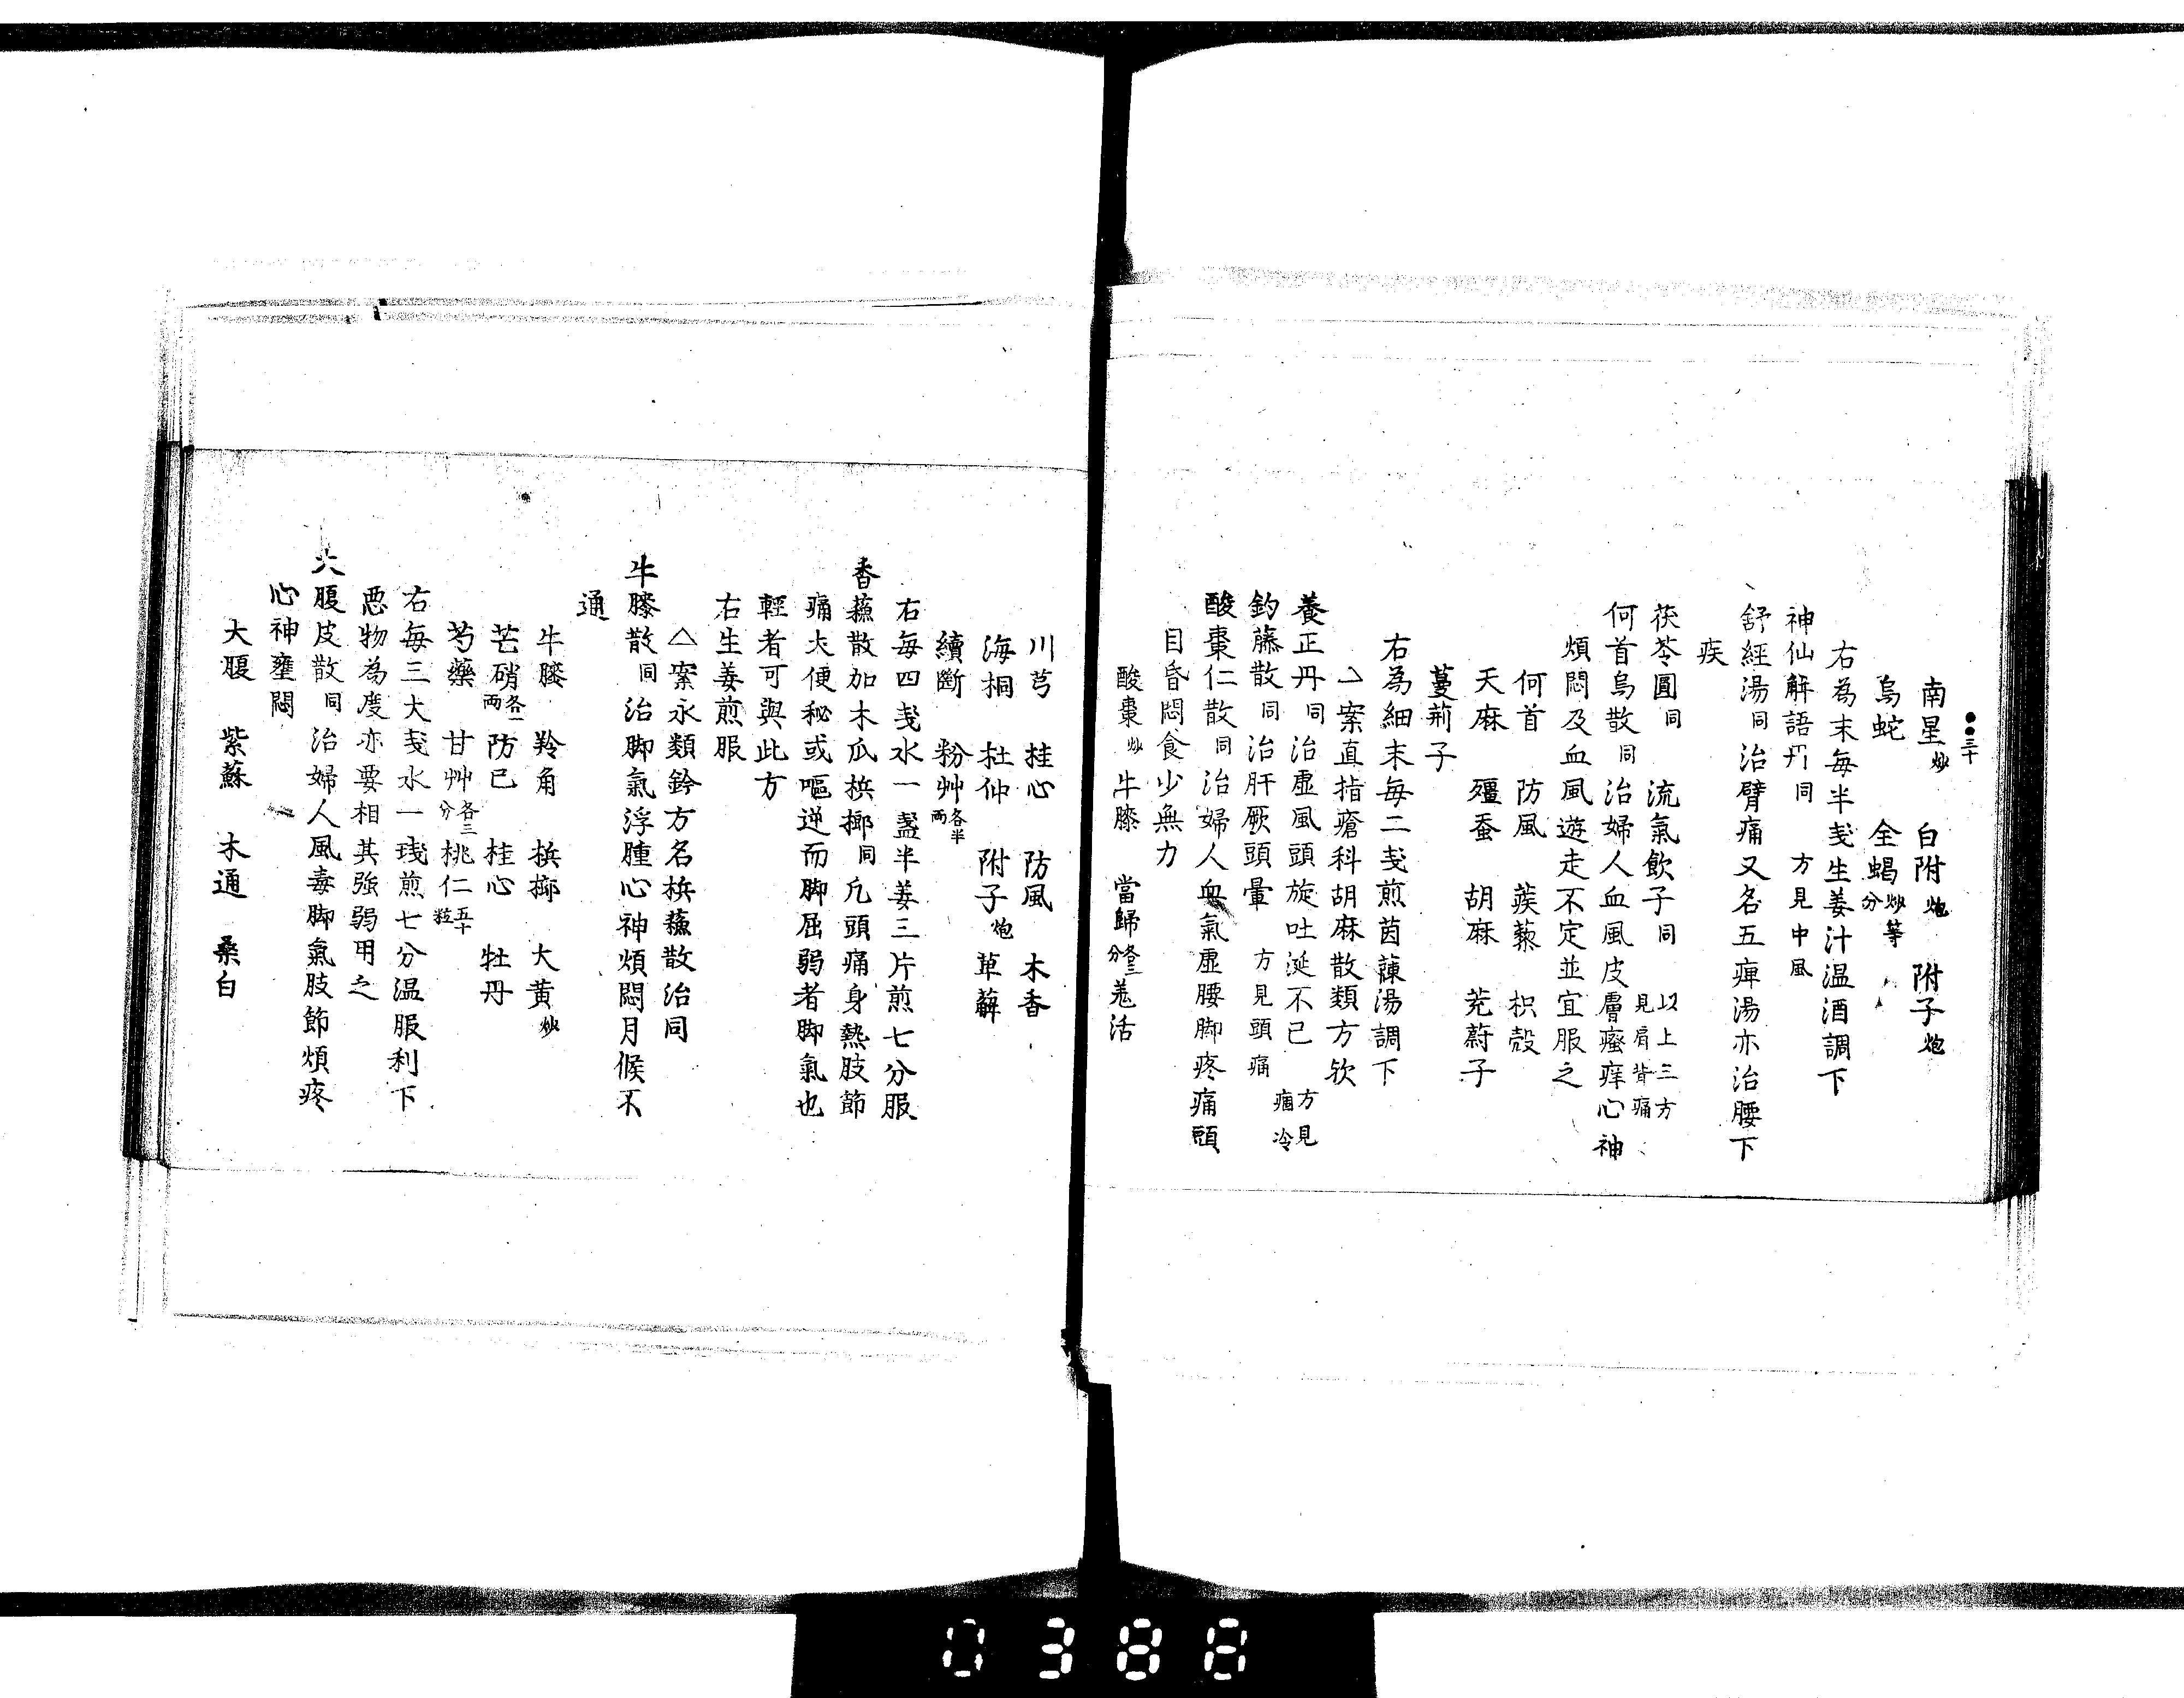 三十
南星炒 白附炮 附子炮
烏蛇 全蝎炒等分
右為末每半戔生姜汁温酒調下
神仙解語丹同 方見中風
舒經湯同治臂痛又名五痺湯亦治腰下
疾
茯苓圓同 流氣飲子同 以上三方見肩背痛
何首烏散同治婦人血風皮膚瘙痒心神
煩悶及血風遊走不定並宜服之
何首 防風 蒺藜 枳殻
天麻 殭蚕 胡麻 茺蔚子
蔓荊子
右為細末每二戔煎茵蔯湯調下
△案直指瘡科胡麻散類方欤
養正丹同治虚風頭旋吐涎不已 方見痼冷
釣藤散同治肝厥頭暈 方見頭痛
酸棗仁散同治婦人血氣虚腰脚疼痛頭
目昏悶食少無力
酸棗炒 牛膝 當歸各三分 羗活
川芎 桂心 防風 木香
海桐 杜仲 附子炮 萆薢
續斷 粉艸各半兩
右每四戔水一盞半姜三片煎七分服
香蘓散加木瓜梹榔同凢頭痛身熱肢節
痛大便秘或嘔逆而脚屈弱者脚氣也
輕者可與此方
右生姜煎服
△案永類鈐方名梹蘓散治同
牛膝散同治脚氣浮腫心神煩悶月候不
通
牛膝 羚角 梹榔 大黄炒
芒硝各一兩 防己 桂心 牡丹
芍藥 甘艸各三分 桃仁五十粒
右每三大戔水一琖煎七分温服利下
悪物為度亦要相其強弱用之
大腹皮散同治婦人風毒脚氣肢節煩疼
心神壅悶
大腹 紫蘇 木通 桑白
0388